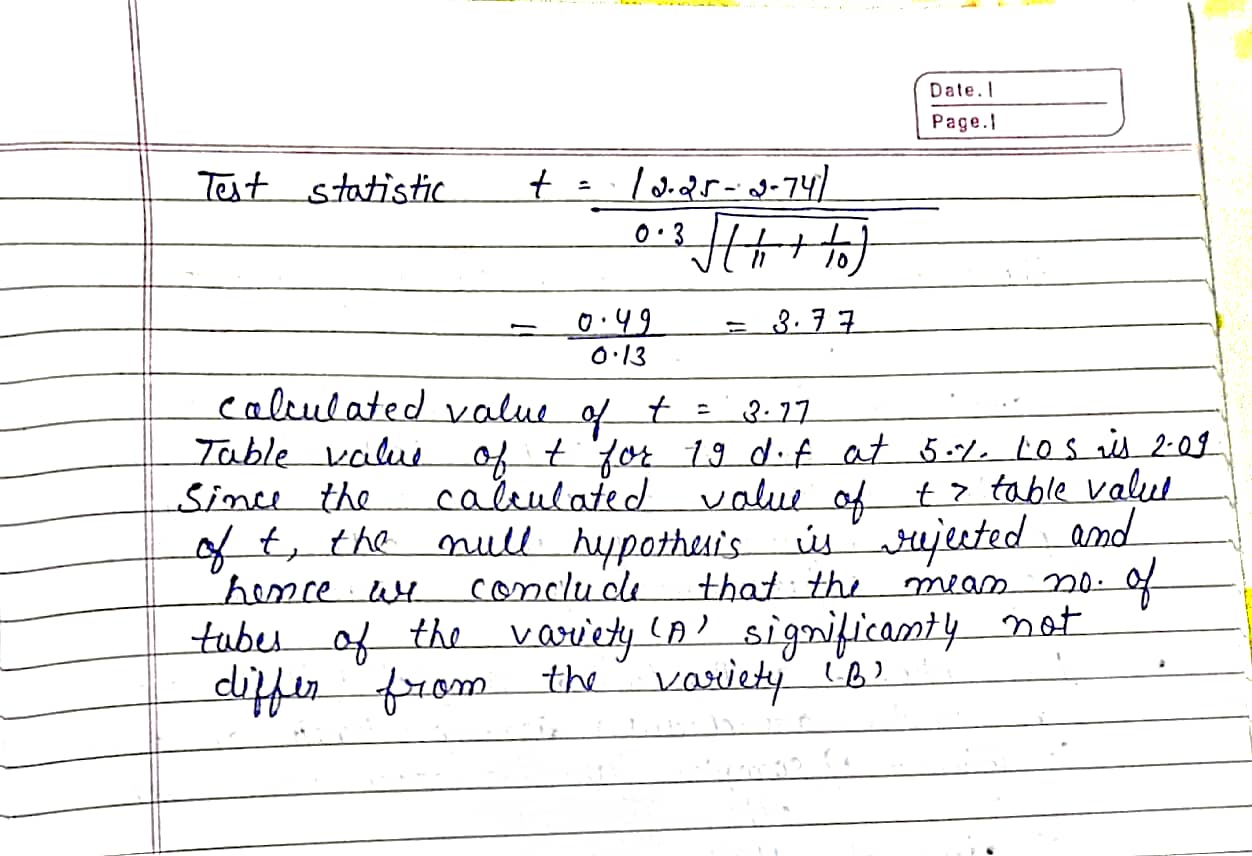 Date.
Page.
Test statistic t = |2.25 - 2.74|
0.3 √(1/11 + 1/10)
= 0.49 = 3.77
0.13
calculated value of t = 3.77
Table value of t for 19 d.f at 5.%. LOS is 2.09
Since the calculated value of t > table value
of t, the null hypothesis is rejected and
hence we conclude that the mean no. of
tubes of the variety (A) significanty not
differ from the variety (B)